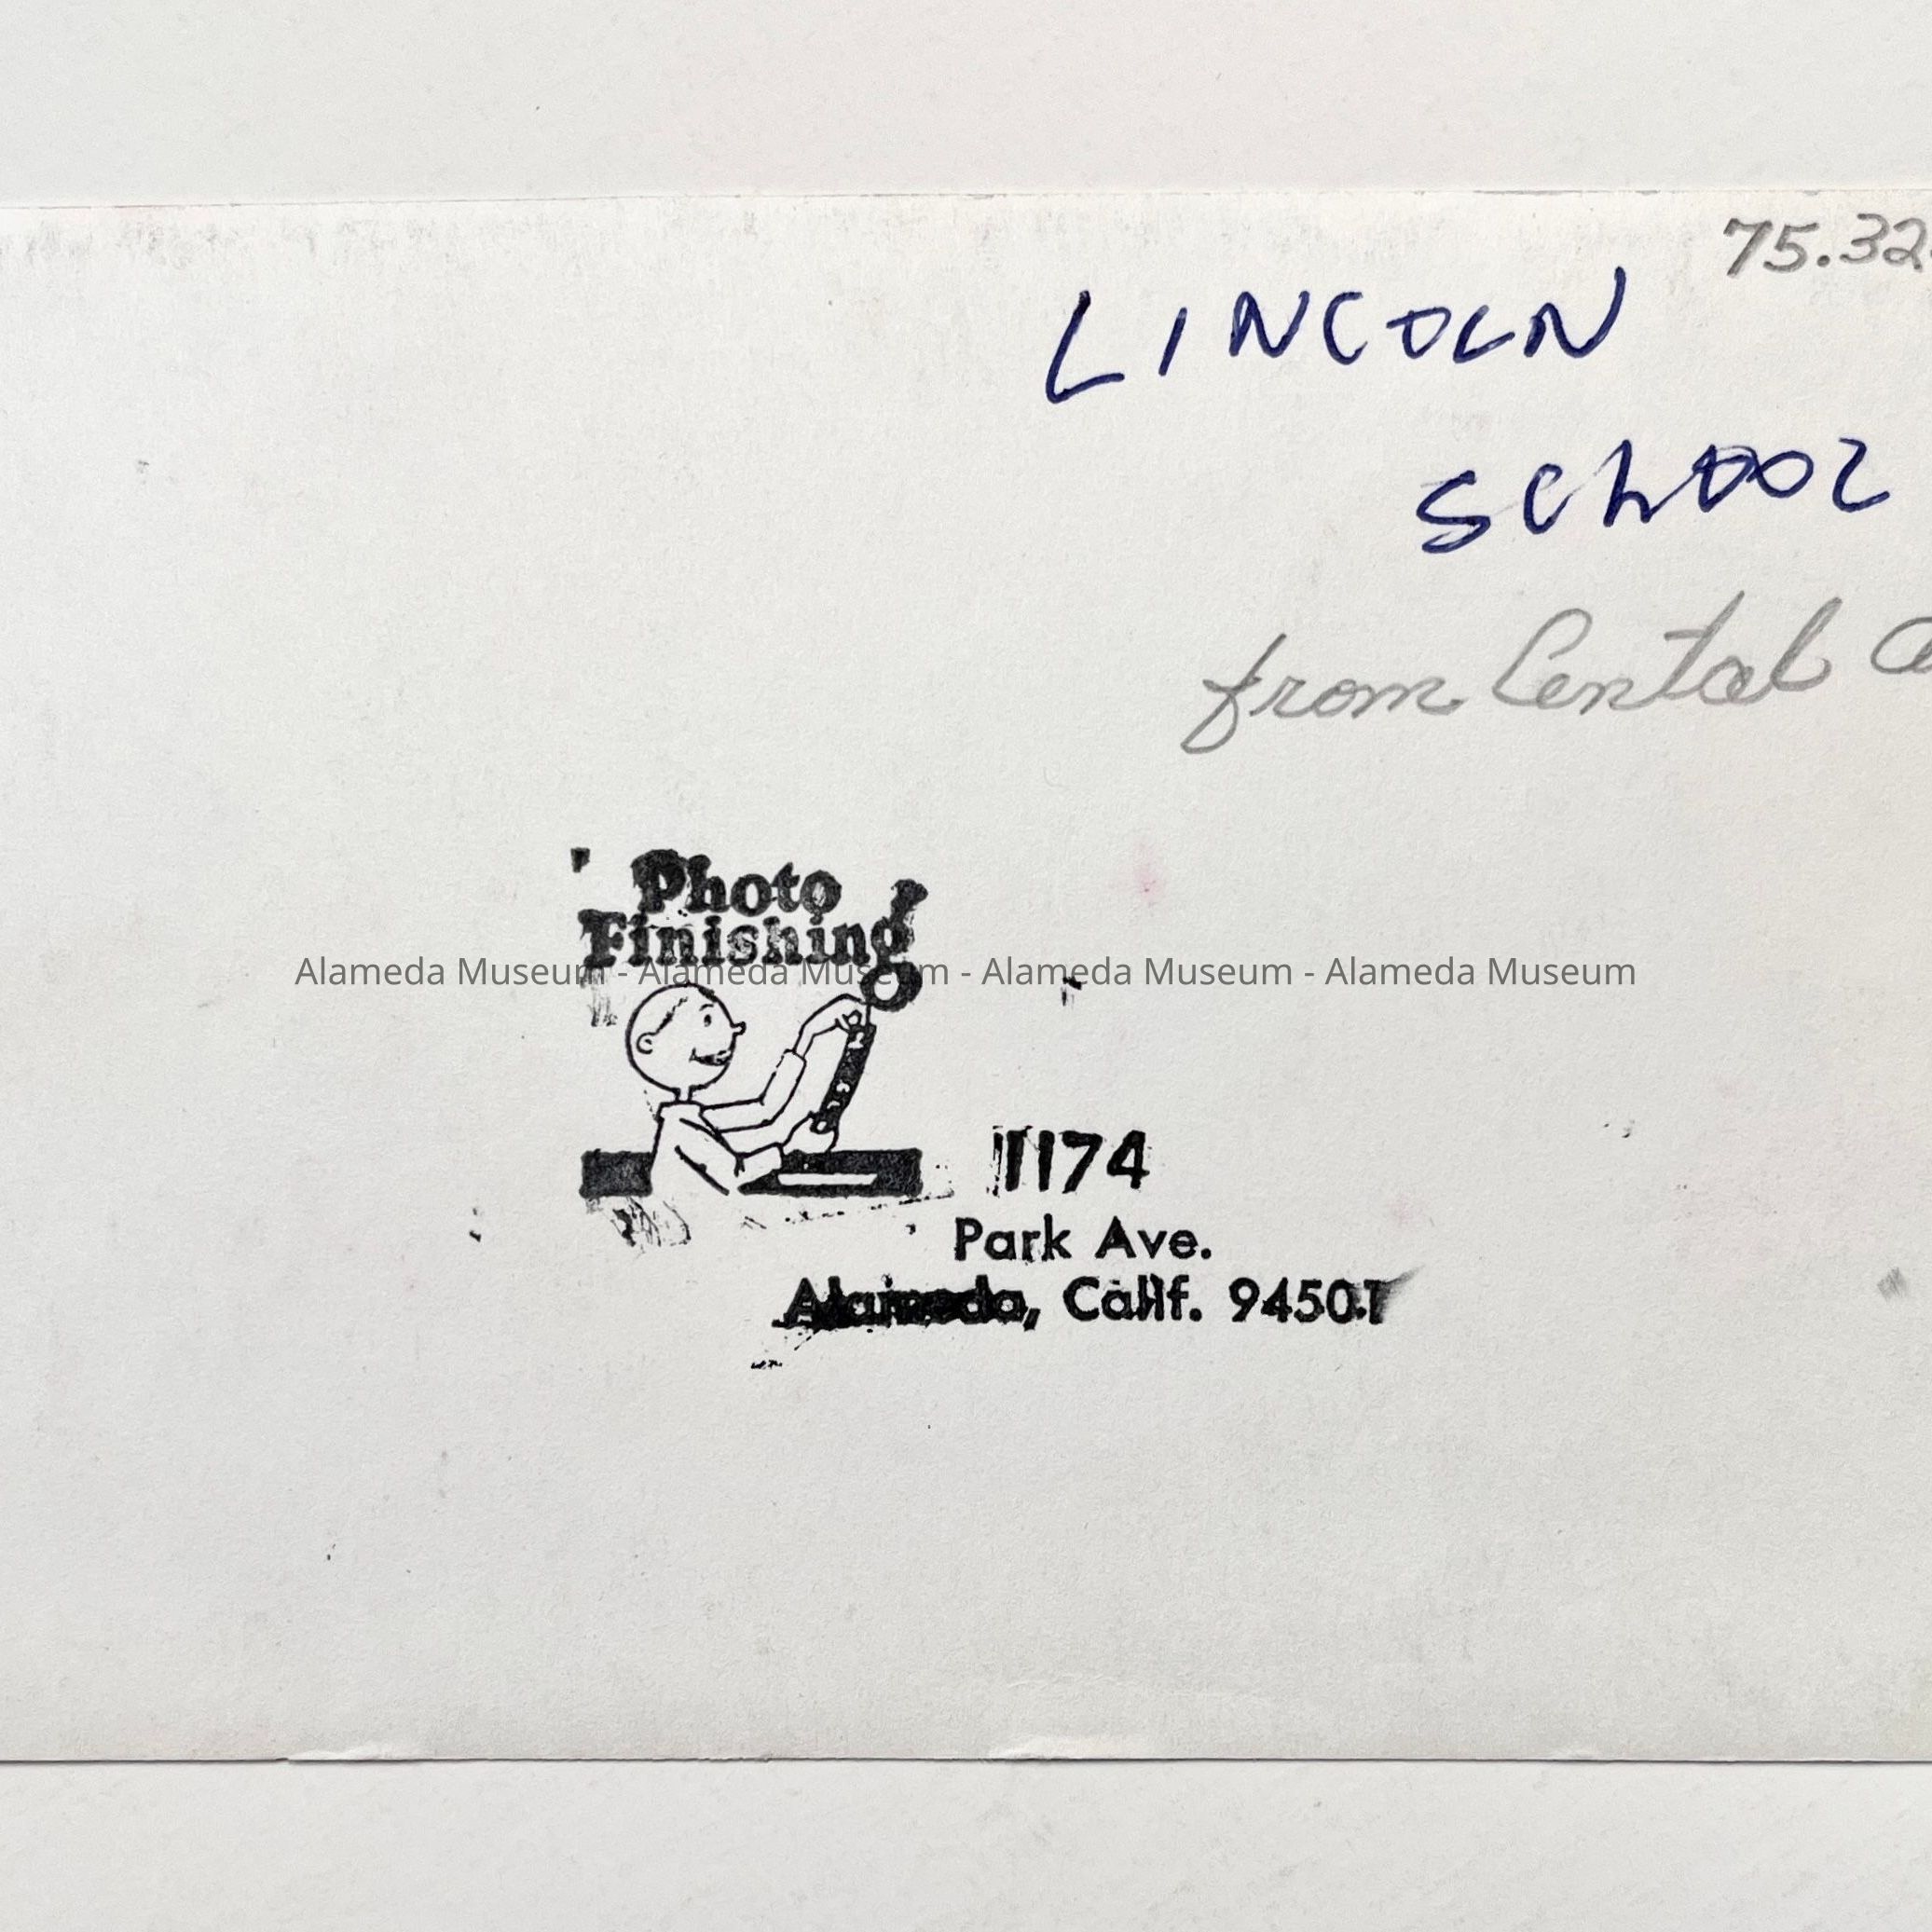 75.32
LINCOLN
SCHOOL
from Cental
Photo
Finishing
Alameda Museum - Alameda Museum - Alameda Museum - Alameda Museum
1174
Park Ave.
Alameda, Calif. 94501